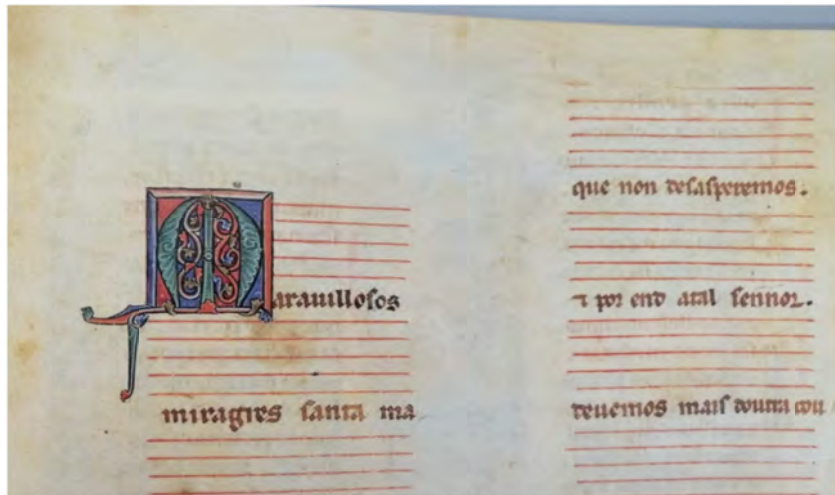 Marauillosos
miragres santa ma
que non desasperemos.
⁊ por end atal sennor.
deuemos mais doutra cou